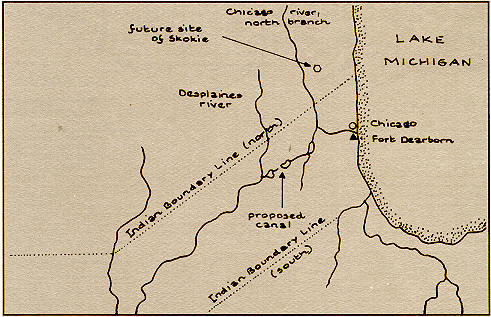 Chicago river,
north branch
future site
of Skokie
LAKE
MICHIGAN
Desplaines
river
Chicago
Fort Dearborn
Indian Boundary Line (north)
proposed
canal
Indian Boundary Line
(south)